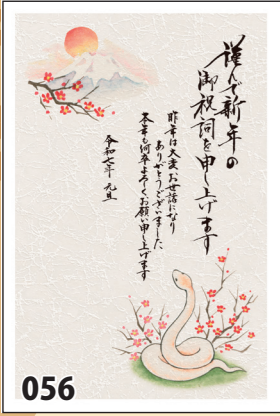 謹んで新年の
御祝詞を申し上げます
昨年は大変お世話になり
ありがとうございました
本年も何卒よろしくお願い申し上げます
令和七年 元旦
056